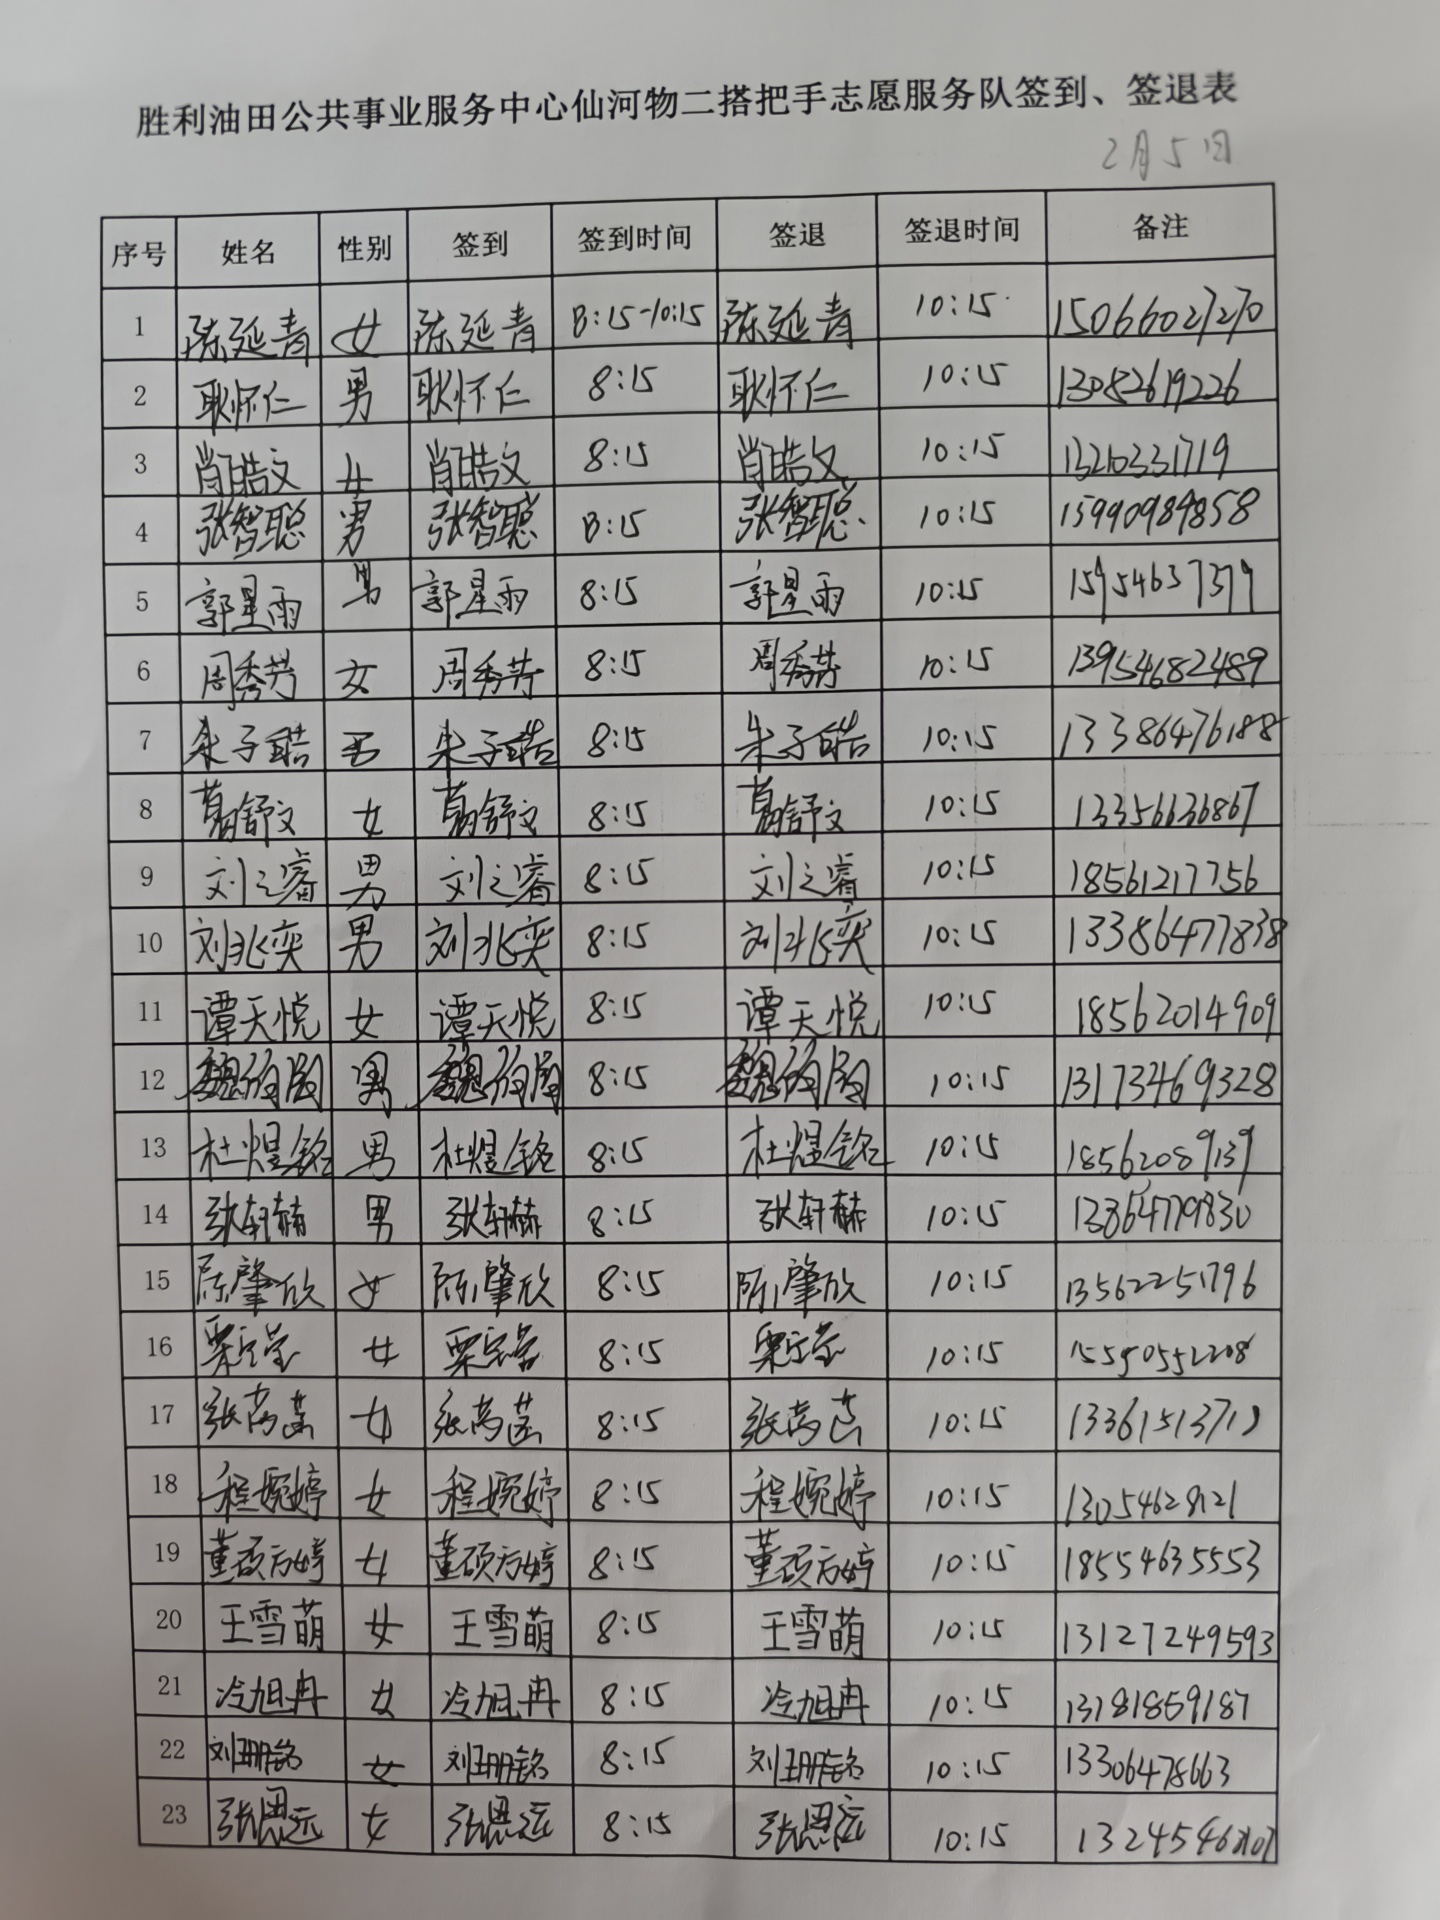 胜利油田公共事业服务中心仙河物二搭把手志愿服务队签到、签退表
2月5日
序号 姓名 性别 签到 签到时间 签退 签退时间 备注
1 陈延青 女 陈延青 8:15-10:15 陈延青 10:15 15066027270
2 耿怀仁 男 耿怀仁 8:15 耿怀仁 10:15 13082619226
3 肖皓文 女 肖皓文 8:15 肖皓文 10:15 13210331719
4 张智聪 男 张智聪 8:15 张智聪 10:15 15990989858
5 郭星雨 男 郭星雨 8:15 郭星雨 10:15 15954637379
6 周秀芳 女 周秀芳 8:15 周秀芳 10:15 13954682489
7 朱子皓 朱子皓 8:15 朱子皓 10:15 13386476188
8 葛舒文 女 葛舒文 8:15 葛舒文 10:15 13356636867
9 刘之睿 男 刘之睿 8:15 刘之睿 10:15 18561217756
10 刘兆奕 男 刘兆奕 8:15 刘兆奕 10:15 13386477838
11 谭天悦 女 谭天悦 8:15 谭天悦 10:15 18562014909
12 男 8:15 10:15 13173469328
13 杜煜铭 男 杜煜铭 8:15 杜煜铭 10:15 18562089139
14 张轩赫 男 张轩赫 8:15 张轩赫 10:15 13864779830
15 陈肇欣 女 陈肇欣 8:15 陈肇欣 10:15 13562251796
16 女 8:15 10:15
17 女 8:15 10:15
18 程婉婷 女 程婉婷 8:15 程婉婷 10:15 13054628121
19 董硕方婷 女 董硕方婷 8:15 董硕方婷 10:15 18554635553
20 王雪萌 女 王雪萌 8:15 王雪萌 10:15 13127249593
21 冷旭冉 女 冷旭冉 8:15 冷旭冉 10:15 13181859187
22 刘珊铭 女 刘珊铭 8:15 刘珊铭 10:15 13306478663
23 张思远 女 张思远 8:15 张思远 10:15